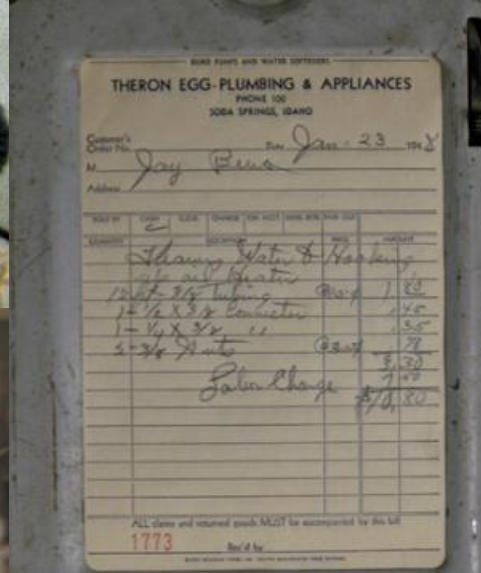 DURO PUMPS AND WATER SOFTENERS
THERON EGG-PLUMBING & APPLIANCES
PHONE 100
SODA SPRINGS, IDAHO
Customer's
Order No. Date Jan. 23 194
M Jay
Address
SOLD BY CASH C.O.D. CHARGE ON ACCT. MDSE. RETD. PAID OUT
QUANTITY DESCRIPTION PRICE AMOUNT
Thawing Water & Hooking
up oil Heater
12 ft 3/8 Tubing @ 15¢ 1.80
1 - 1/2 X 3/8 Connector .45
1 - 1/4 X 3/8 " .35
3/8 Nuts
3.30
7.50
Labor Charge $10.80
ALL claims and returned goods MUST be accompanied by this bill
1773 Rec'd by